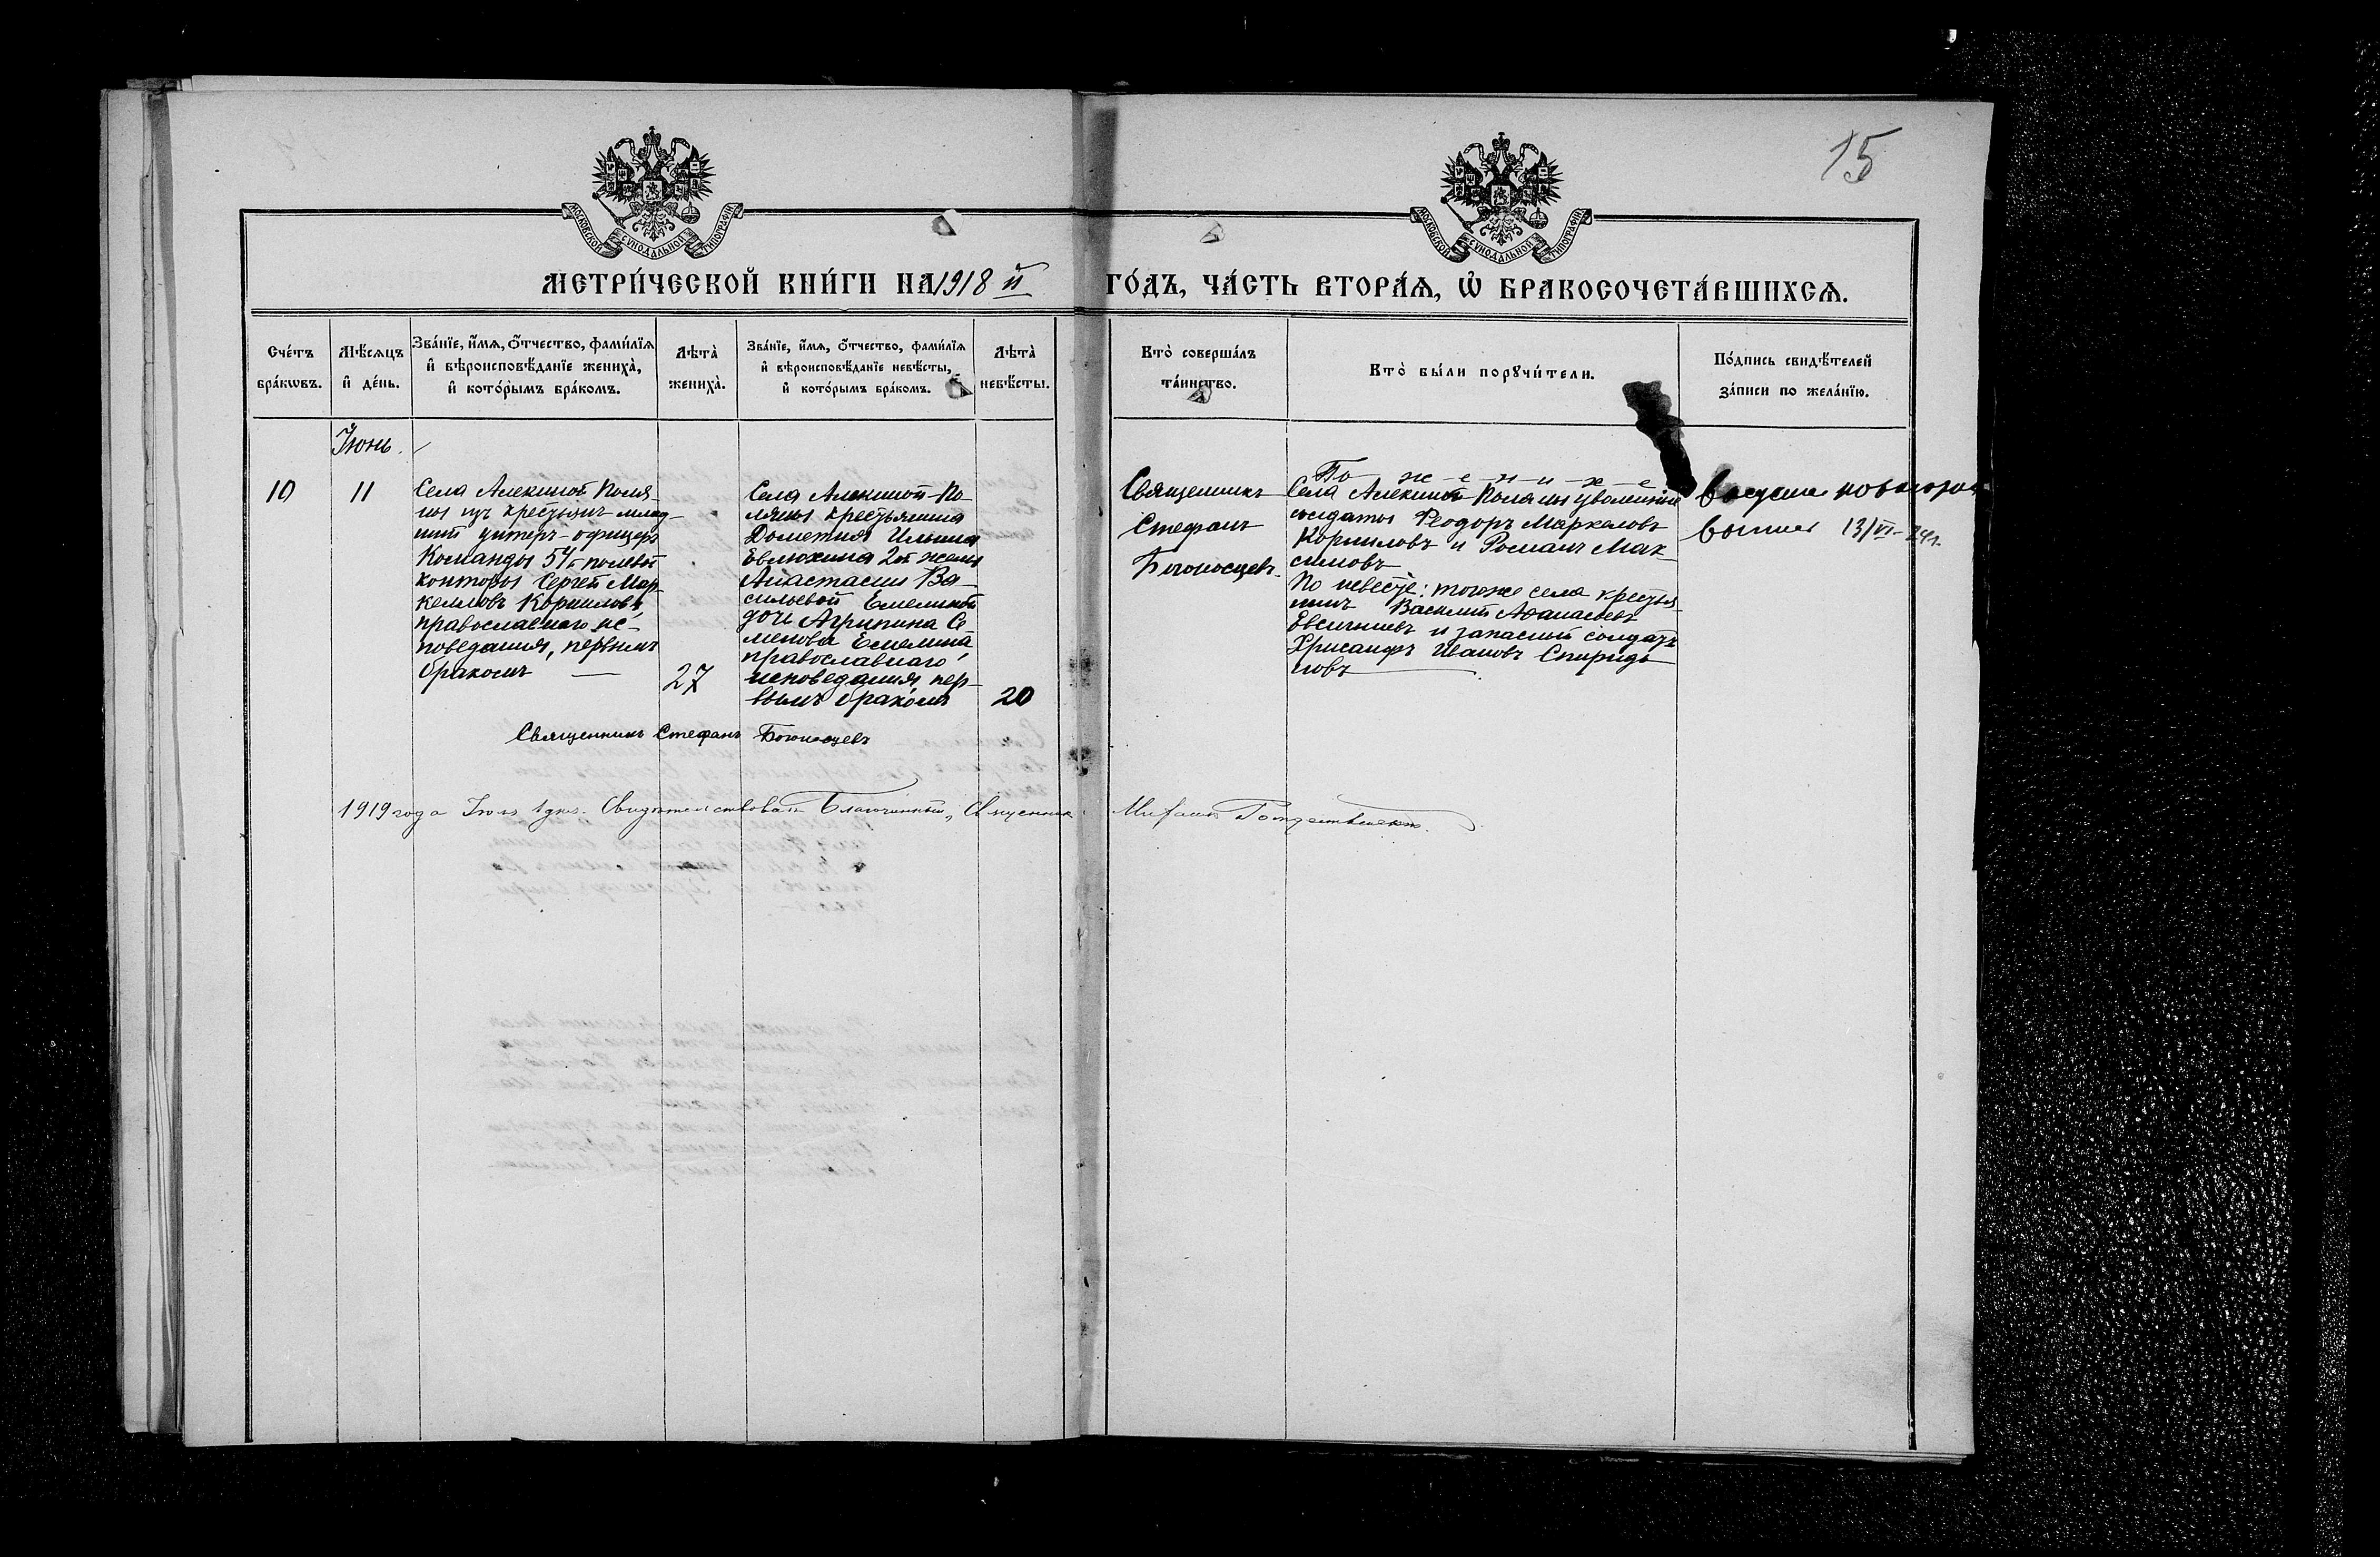 15
МОСКОВСКОЙ СѴНОДАЛЬНОЙ ТИПОГРАФІИ
МОСКОВСКОЙ СѴНОДАЛЬНОЙ ТИПОГРАФІИ
МЕТРИ́ЧЕСКОЙ КНИ́ГИ НА 1918 й ГО́ДЪ, ЧА́СТЬ ВТОРА́Я, Ѽ БРАКОСОЧЕТА́ВШИХСѦ.
Сче́тъ
бра́кѡвъ.
Мѣ́сѧцъ
и҆ де́нь.
Зва́нїе, и҆́мѧ, ѻ҆́тчество, фами́лїѧ
и҆ вѣроисповѣ́данїе жениха̀,
и҆ кото́рымъ бра́комъ.
Лѣта̀
жениха̀.
Зва́нїе, и҆́мѧ, ѻ҆́тчество, фами́лїѧ
и҆ вѣроисповѣ́данїе невѣ́сты,
и҆ кото́рымъ бра́комъ.
Лѣта̀
невѣ́сты.
Кто̀ соверша́лъ
та́инство.
Кто̀ бы́ли порꙋчи́тели.
По́дпись свидѣ́телей
за́писи по жела́нїю.
Іюнь.
10
11
Села Алекиной Поля-
ны изъ крестьянъ млад-
шій унтеръ-офицеръ
Команды 54й полевой
конторы Сергей Мар-
келловъ Корниловъ,
православнаго ис-
поведания, первымъ
бракомъ —
27
Села Алекиной По-
ляны крестьянина
Дометия Ильина
Евлюхина 2ой жены
Анастасии Ва-
сильевой Емелиной
дочь Агрипина Се
менова Емелина
православнаго
исповедания, пер-
вымъ бракомъ
20
Священникъ
Стефанъ
Богоносцевъ.
По женихе
Села Алекиной Поляны уволенные
солдаты Феодоръ Маркаловъ
Корниловъ и Романъ Мак-
симовъ
По невесте: тогоже села крестья-
нинъ Василий Афанасьевъ
Евсигниевъ и запасный солдатъ
Хрисанфъ Ивановъ Спиридо
новъ
13/VI-24г.
Священникъ Стефанъ Богоносцевъ
1919 года Июль 1 дня. Свидѣтельствовалъ Благочинный, Священник Михаилъ Рождественскій.